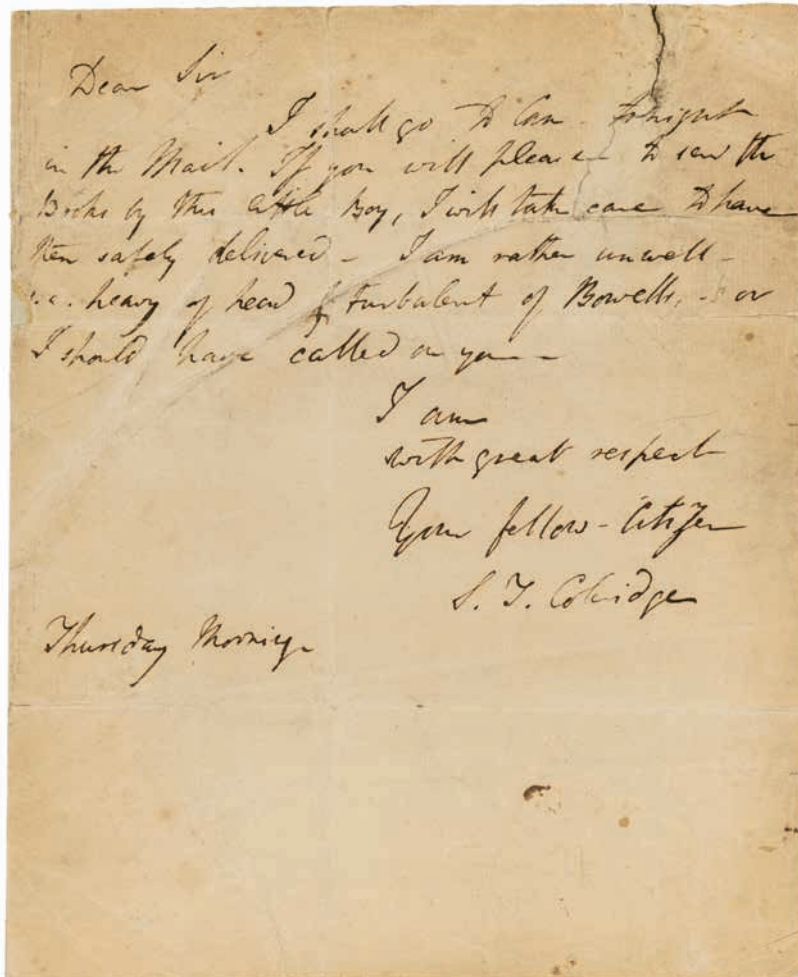 Dear Sir
I shall go to Cam tonight
in the Mail. If you will please to send the
Books by this little Boy, I will take care to have
them safely delivered – I am rather unwell –
i.e. heavy of head & turbulent of Bowells, – or
I should have called on you –
I am
with great respect
Your fellow-Citizen
S. T. Coleridge
Thursday Morning